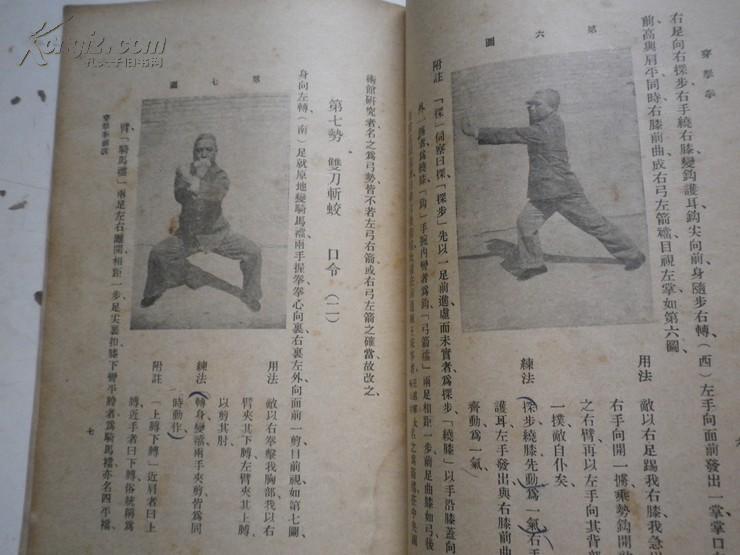 穿拏拳
右足向右探步右手繞右膝變鈎護耳鈎尖向前身隨步右轉（西）左手向面前發出一掌掌口
前高與肩平同時右膝前曲成右弓左箭襠目視左掌如第六圖
第六圖
用法
敵以右足踢我右膝我急
右手向開一摟乘勢鈎開
之右臂再以左手向其背部
一撲敵自仆矣
練法
探步繞膝先動爲一氣右手
護耳左手發出與右膝前
齊動爲一氣
附註
「探」伺察曰探「探步」先以一足前進虛而未實者爲探步「繞膝」以手沿膝蓋向
外一摟當爲繞膝「鈎」手腕內彎者爲鈎「弓箭襠」兩足相距一步前足曲膝如弓後
術館研究者名之爲弓勢皆不若左弓右箭或右弓左箭之確當故改之
第七勢 雙刀斬蛟 口令（二）
身向左轉（南）足就原地變騎馬襠兩手握拳拳心向裏右裏左外向面前一剪目前視如第七圖
第七圖
用法
敵以右拳擊我胸部我以右
臂夾其下膊左臂夾其上膊
以剪其肘
練法
轉身變襠兩手夾剪皆爲同
時動作
附註
（上膊下膊）近肩者曰上
膊近手者曰下膊俗統稱爲
臂「騎馬襠」兩足左右離開相距一步足尖裏扣膝下彎平胯者爲騎馬襠亦名四平襠
七